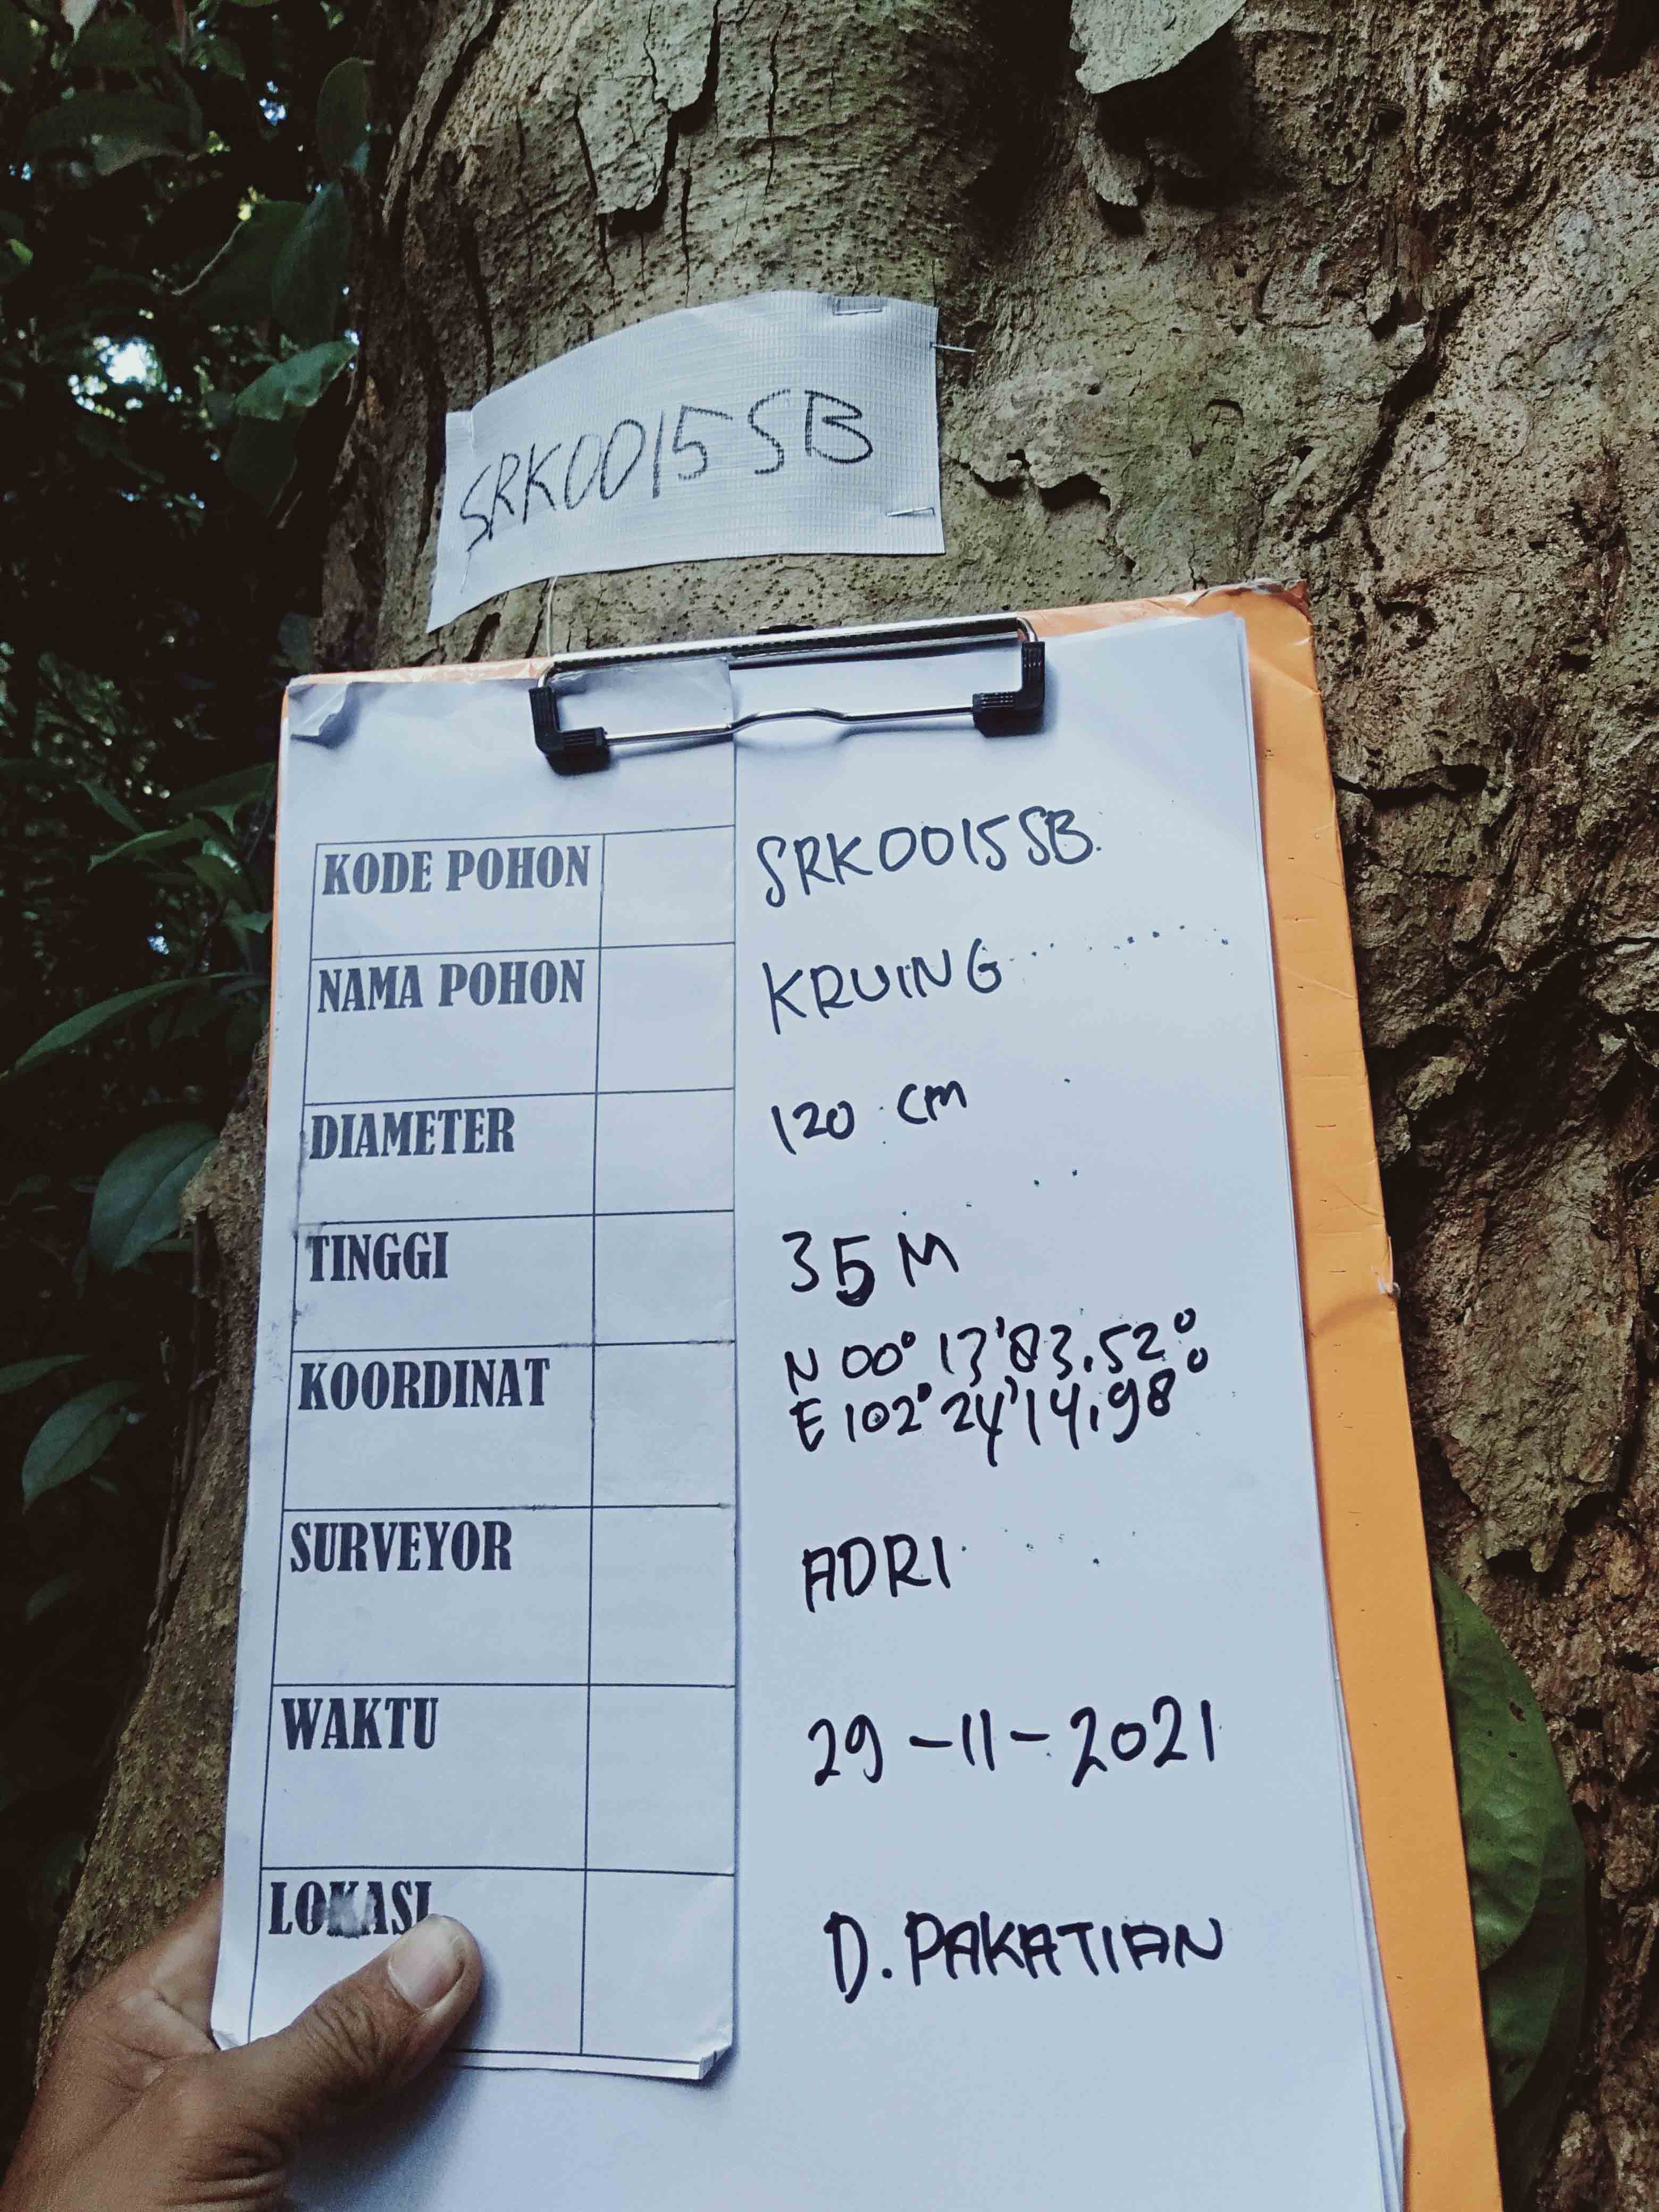 SRK0015SB
KODE POHON SRK0015SB
NAMA POHON KRUING
DIAMETER 120 CM
TINGGI 35 M
KOORDINAT N 00° 13'83.52°
E 102° 24'14.98°
SURVEYOR ADRI
WAKTU 29-11-2021
LOKASI D. PAKATIAN